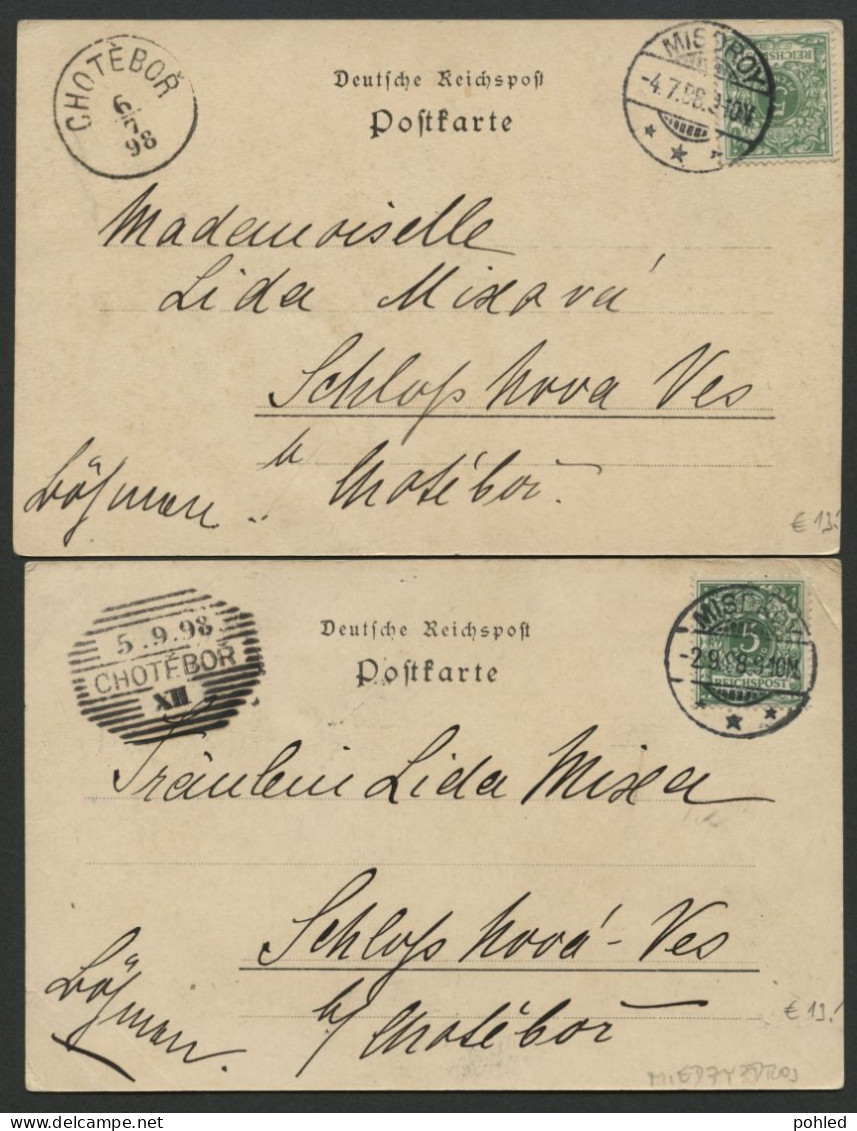 CHOTĚBOŘ
6/7
98
Deutsche Reichspost
Postkarte
MISDROY
-4.7.98.9-10N.
REICHSPOST
Mademoiselle
Lida Mixová
Schloß Nova Ves
b
Chotéboř.
Böhmen.
€ 13.-
5.9.98
CHOTĚBOŘ
XII
Deutsche Reichspost
Postkarte
MISDROY
-2.9.98.9-10N.
5
REICHSPOST
Fräulein Lida Mixa
Schloß Nová-Ves
b/ Chotéboř
Böhmen.
€ 13.-
MIEDZYZDROJ
pohled